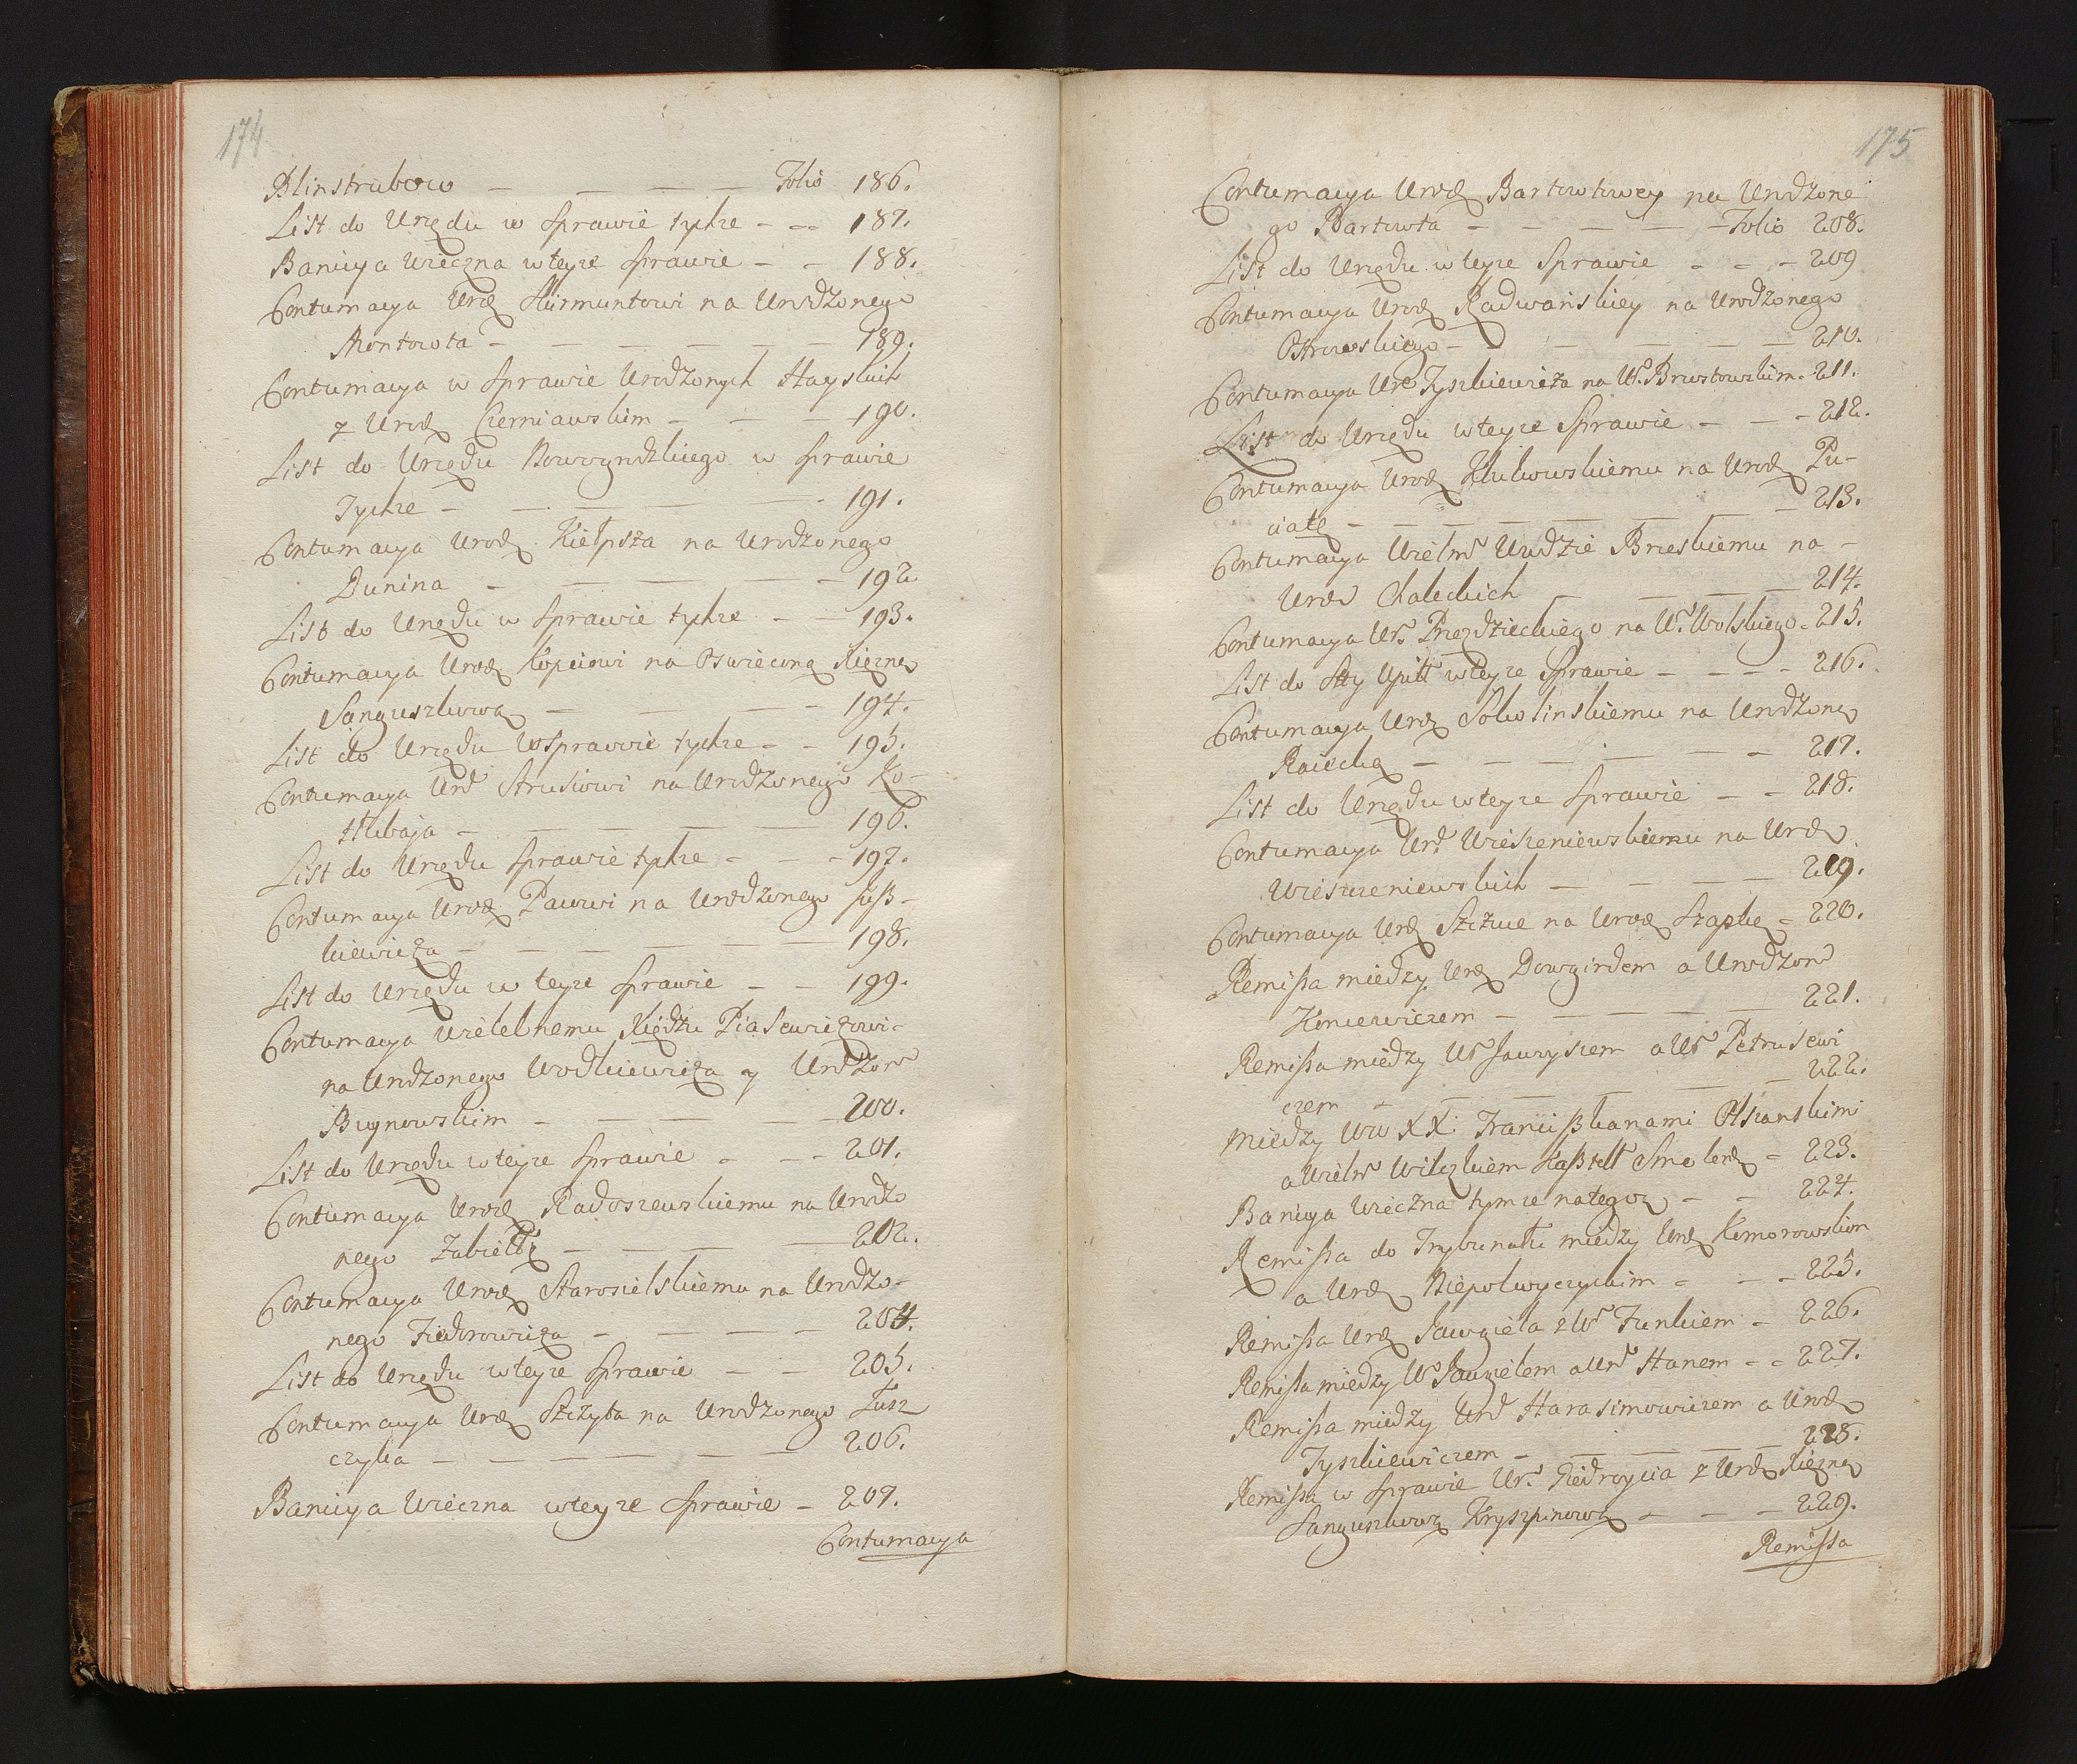 174
Blinstrubow — — — — Folio 186.
List do Urzędu w Sprawie tychże - -- 187.
Banicya wieczna w teyże Sprawie - - 188.
Contumacya Uroz Skirmuntowi na Urodzonego
Montowta - — — — — — 189.
Contumacya w Sprawie Urodzonych Hayskich
z Uroz Czerniawskim - — — 190.
List do Urzędu w Sprawie
Tychże - — — — - 191.
Contumacya Uroz Kiełpsza na Urodzonego
Dunina - — — — - 192
List do Urzędu w Sprawie tychże - — 193.
Contumacya Uroz Kopciowi na Oswieconą Xiężnę
Sanguszkową — — — - 194.
List do Urzędu w Sprawie tychże - - 195.
Contumacya Urd Strusiowi na Urodzonego Ko-
tłubaja - — — — — 196.
List do Urzędu Sprawie tychże - - - 197.
Contumacya Uroz Pacowi na Urodzonego Juß-
kiewicza - — — — — — 198.
List do Urzędu w teyże Sprawie - - 199.
Contumacya Wielebnemu Xiędzu Piasewiczowi-
na Urdzonego Wodkiewicza y Urdzon
Bugnowskim - — — — 200.
List do Urzędu w teyże Sprawie - - - 201.
Contumacya Uroz Radoszewskiemu na Urodzo
nego Zabiełłę - — — — 202.
Contumacya Uroz Starosielskiemu na Urodzo-
nego Fiedorowicza - — — — 204.
List do Urzędu w teyże Sprawie - - 205.
Contumacya Uroz Szczyta na Urodzonego Tusz
czyka - — — — — 206.
Banicya Wieczna w teyże Sprawie - 207.
Contumacya
175
Contumacya Uroz Bartowtowey na Urodzone
go Bartowta - — — — - Folio 208.
List do Urzędu w teyże Sprawie - - - 209
Contumacya Uroz Radwańskiey na Urodzonego
Ostrowskiego - — — — — 210.
Contumacya Uro Tyszkiewicza na W. Brzostowskim. 211.
List do Urzędu w teyże Sprawie - - - 212.
Contumacya Uroz Klukowskiemu na Uroz Pu-
ciatę - — — — — — - 213.
Contumacya Wielm Uudzie Brzeskiemu na -
Urod Chaleckich - — — — 214.
Contumacya Ur. Przezdzieckiego na W. Wolskiego - 215.
List do Stty Upitt w teyże Sprawie - - - - 216.
Contumacya Uroz Sokolinskiemu na Urodzoną
Raiecką - — — — — - 217.
List do Urzędu w teyże Sprawie - - 218.
Contumacya Urd Wieszeniewskiemu na Urod
Wieszczeniewskich — — — - 219.
Contumacya Uroz Szczuce na Uroz Szapkę - 220.
Remissa między Uroz Dowgirdem a Urodzon
Koncewiczem - — — — — 221.
Remissa między W Jawryszem a W Petrusewi
czem - — — — — - 222.
między WW XX: Franciszkanami Olszanskimi
a Wielm Wilczkiem Kasztell Smoleń - 223.
Banicya Wieczna tymże na tegoż - - 224.
Remissa do Trybunału między Uroz Komorowskim
a Uroz Niepokoyczyckim - - - 225.
Remissa Uroz Jawgieła z W Funkiem - 226.
Remissa między W Jawgiełem a Urd Hanem - - 227.
Remissa między Urd Harasimowiczem a Uroz
Tyszkiewiczem - — — — 228.
Remissa w Sprawie Ur. Giedroycia z Uroz Xiężną
Sanguszkową Kryszpinową - - - 229.
Remissa